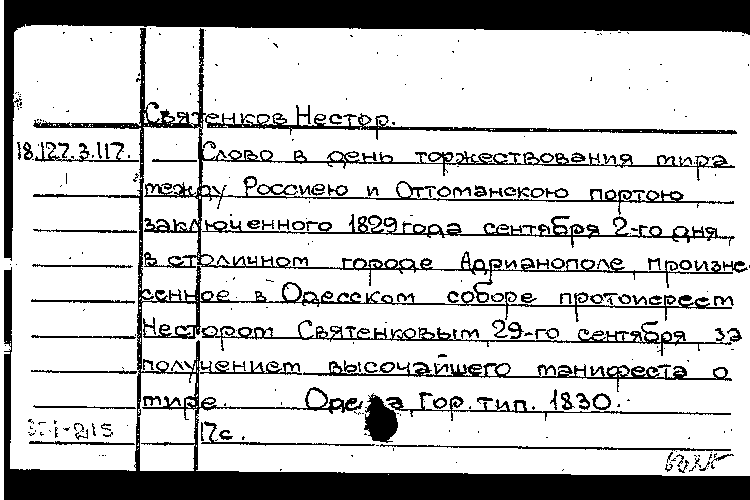 Святенков Нестор.
18.127.3.117. Слово в день торжествования мира
между Россиею и Оттоманскою портою
заключенного 1829 года сентября 2-го дня
в столичном городе Адрианополе, произне-
сенное в Одесском соборе протоиереем
Нестором Святенковым, 29-го сентября за
получением высочайшего манифеста о
мире. Одесса Гор. тип. 1830.
17с.